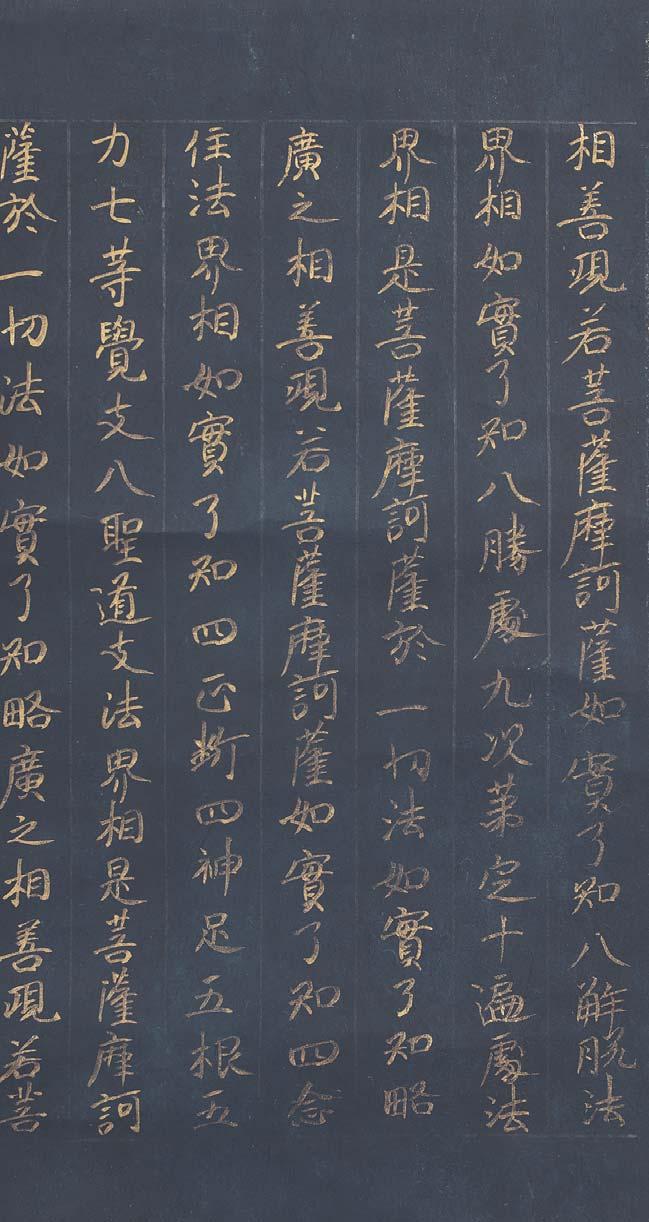 相善現若菩薩摩訶薩如實了知八解脫法
界相如實了知八勝處九次第定十遍處法
界相是菩薩摩訶薩於一切法如實了知略
廣之相善現若菩薩摩訶薩如實了知四念
住法界相如實了知四正斷四神足五根五
力七等覺支八聖道支法界相是菩薩摩訶
薩於一切法如實了知略廣之相善現若菩